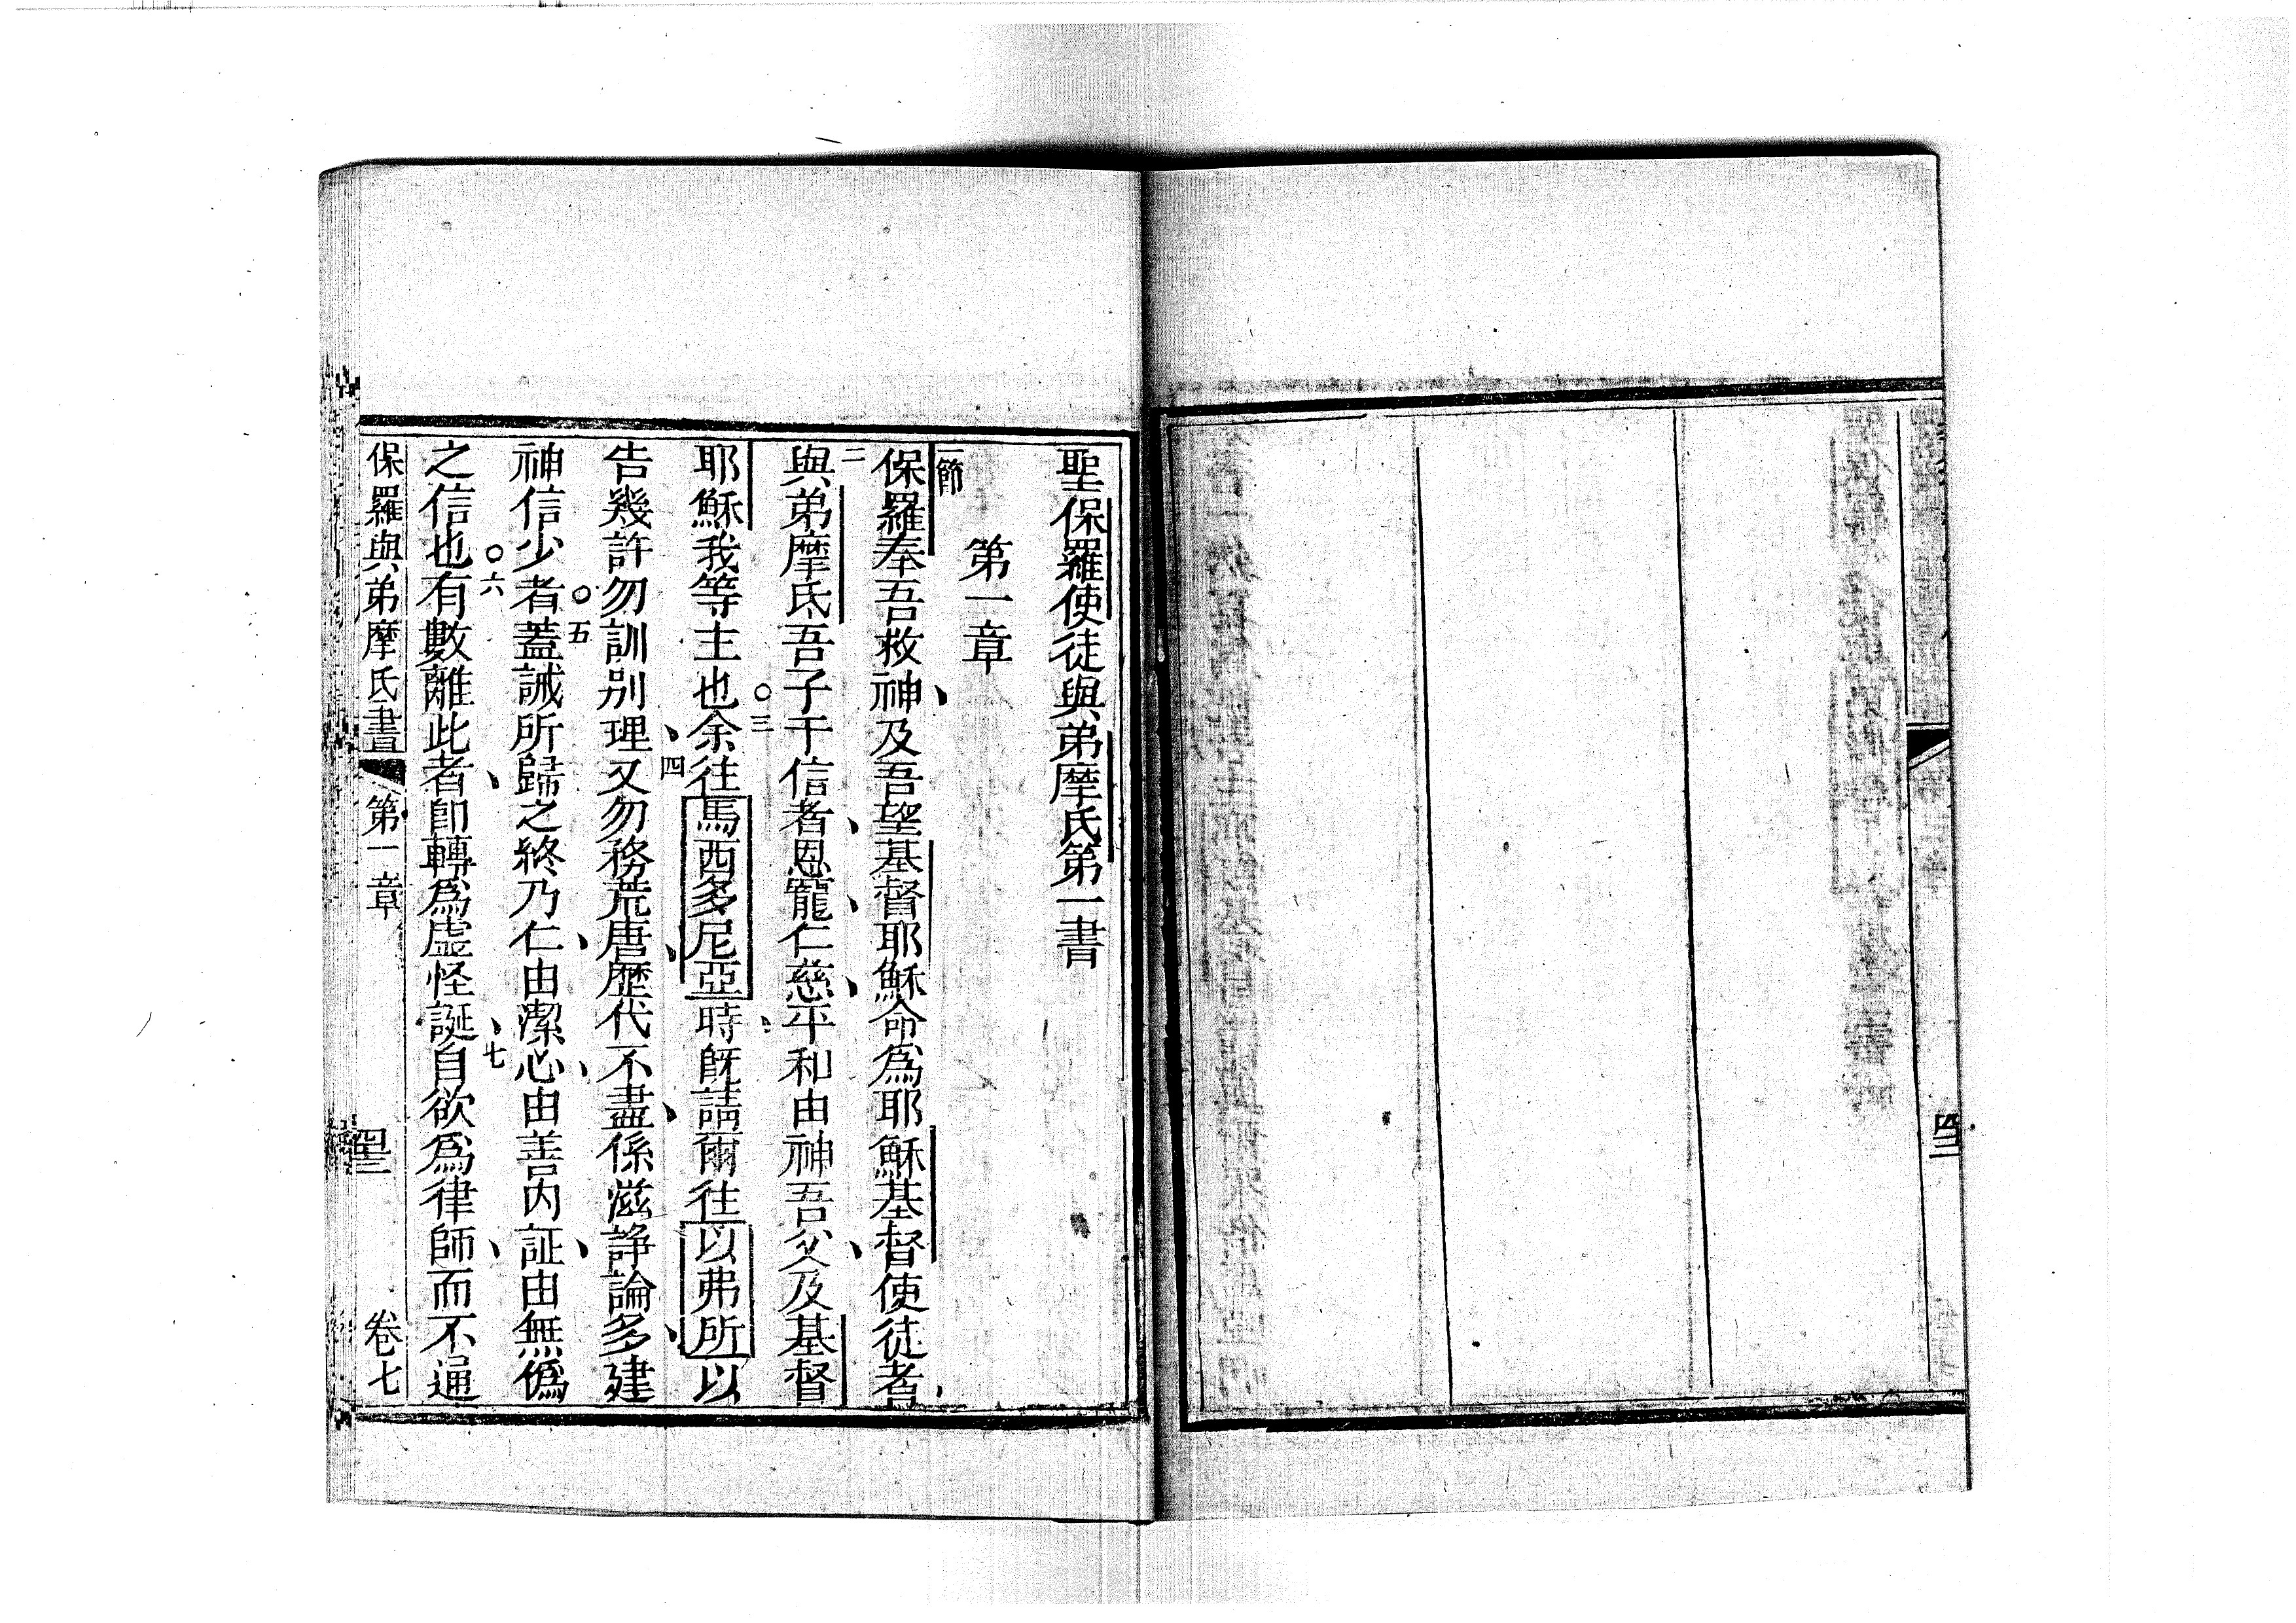 聖保羅使徒與弟摩氏第一書
第一章
一節
保羅奉吾救神、及吾望基督耶穌命爲耶穌基督使徒者、
二與弟摩氏吾子于信者、恩寵、仁慈、平和由神吾父、及基督
耶穌我等主也○三余往馬西多尼亞時、旣請爾往以弗所以
告幾許勿訓別理、四又勿務荒唐、歷代不盡、係滋諍論多、建
神信少者○五蓋誡所歸之終乃仁、由潔心、由善內証、由無僞
之信也○六有數離此者、卽轉爲虛怪誕、七自欲爲律師、而不通
保羅與弟摩氏書 第一章 卷七